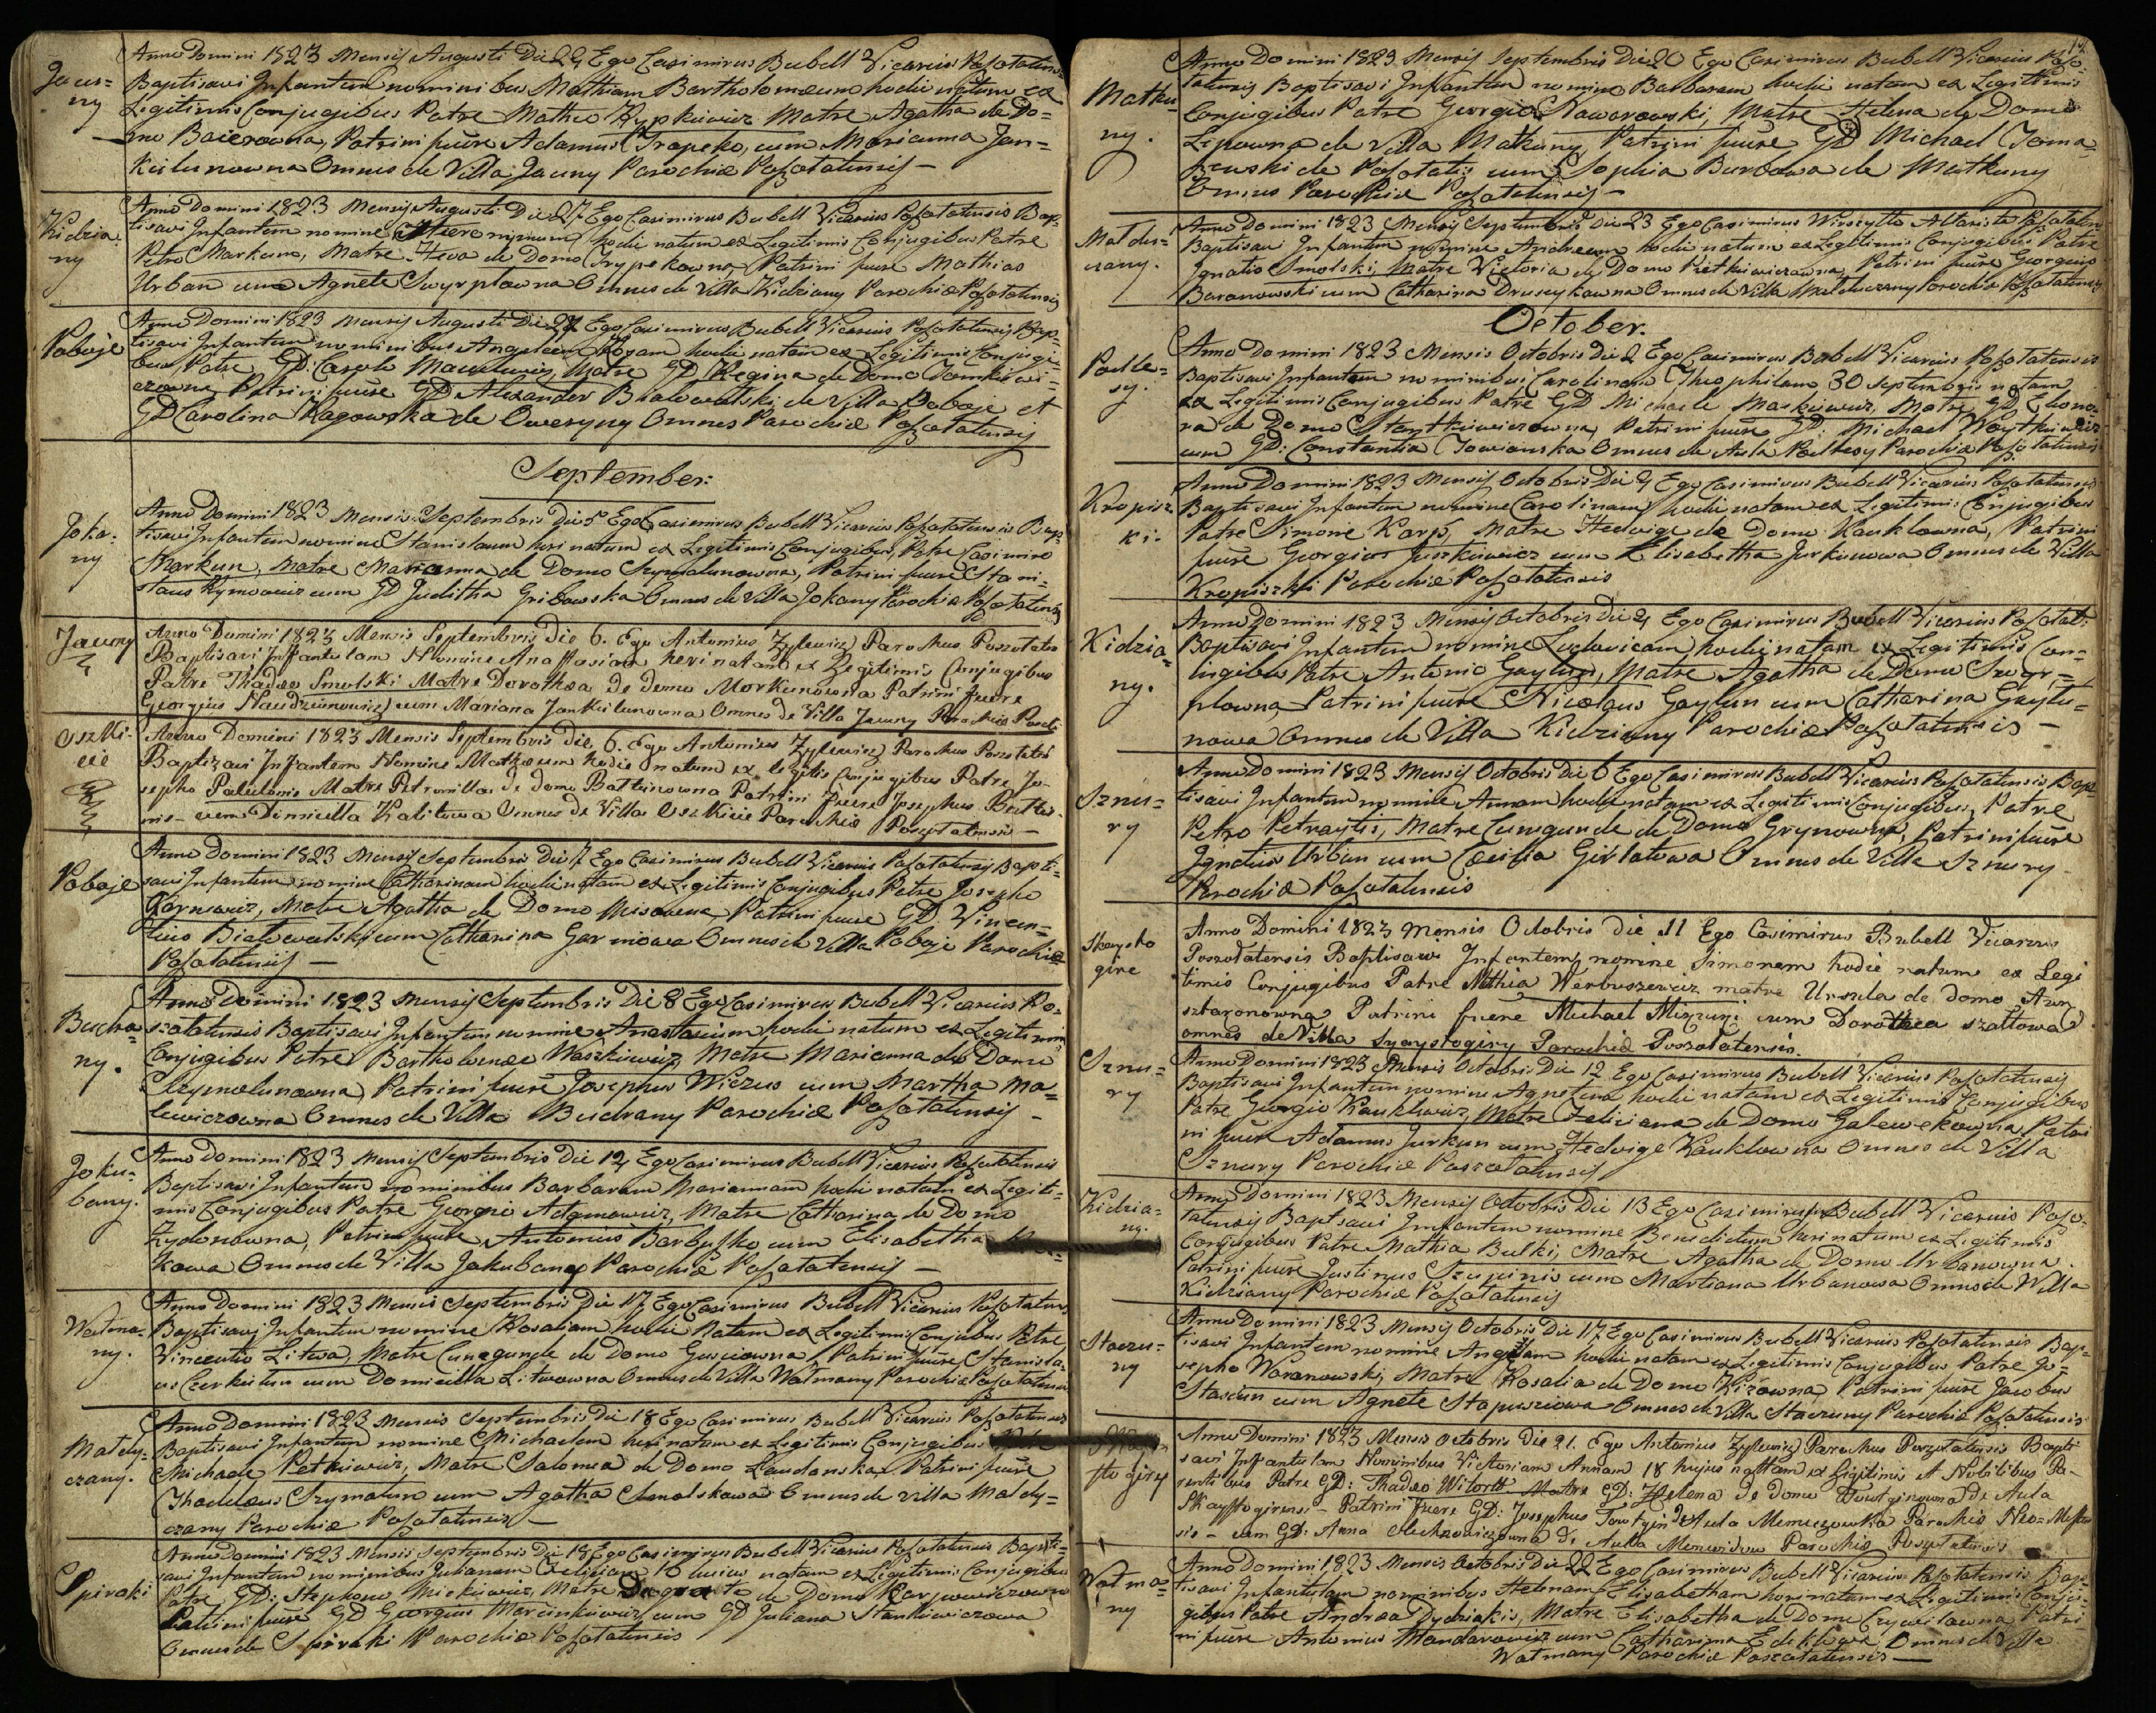 Jauny
Anno Domini 1823 Mensis Augusti Die 24 Ego Casimirus Bubell Vicarius Poszatatensis
Baptisavi Infantem nominibus Mathiam Bartholomæum hodie natum ex
Legitimis Conjugibus Patre Matheo Rypkiewicz Matre Agatha de Do=
mo Baierowna, Patrini fuere Adamus Trapeko, cum Marianna Jan=
kielunowna Omnes de Villa Jauny Parochiæ Poszatatensis —
Kidzia=
ny
Anno Domini 1823 Mensis Augusti Die 27 Ego Casimirus Bubell Vicarius Poszatatensis Bap=
tisavi Infantem nomine Hieronimum hodie natum ex Legitimis Conjugibus Patre
Petro Markun, Matre Heva de Domo Trypekowna, Patrini fuere Mathias
Urban cum Agnete Swyrplowna Omnes de Villa Kidziany Parochiæ Poszatatensis
Poboje
Anno Domini 1823 Mensis Augusti Die 27 Ego Casimirus Bubell Vicarius Poszatatensis Bap=
tisavi Infantem nominibus Angelam Rosam hodie natam ex Legitimis Conjugi=
bus, Patre GD: Carolo Mackiewicz, Matre GD Regina de Domo Tomkiewi=
czowna Patrini fuere GD Alexander Białowalski de Villa Poboje et
GD Carolina Ragowska de Oweryny Omnes Parochiæ Poszatatensis
September:
Joka=
ny
Anno Domini 1823 Mensis Septembris Die 5 Ego Casimirus Bubell Vicarius Poszatatensis Bap=
tisavi Infantem nomine Stanislaum heri natum ex Legitimis Conjugibus, Patre Casimiro
Markun, Matre Marianna de Domo Szymelunowna, Patrini fuere Stani=
slaus Rymowicz cum GD Juditha Gribowska Omnes de Villa Jokany Parochiæ Poszatatensis
Jauny
Anno Domini 1823 Mensis Septembris die 6. Ego Antonius Zylewicz Parochus Poszatatensis
Baptisavi Infantulam Nomine Anastasiam heri natam ex Legitimis Conjugibus
Patre Thadæo Smolski Matre Dorothea de domo Morkunowna Patrini fuere
Georgius Naudziunowicz cum Mariana Jankielunowna Omnes de Villa Jauny Parochiæ
Uszki=
cie
Anno Domini 1823 Mensis Septembris die 6. Ego Antonius Zylewicz Parochus Poszatatensis
Baptizavi Infantem Nomine Matheum hodie natum ex legitis Conjugibus Patre Jo=
sepho Palulonis Matre Petronilla de domo Battunowna Patrini fuere Josephus
cum Dimicella Kalitowa Omnes de Villa Uszkicie Parochiæ Poszatatensis —
Poboje
Anno Domini 1823 Mensis Septembris Die 7 Ego Casimirus Bubell Vicarius Poszatatensis Bapti=
savi Infantem nomine Catharinam hodie natam ex Legitimis Conjugibus Patre Josepho
Gorniewicz, Matre Agatha de Domo Misowna Patrini fuere GD. Vincen=
tius Białowalski cum Catharina Garniowa Omnes de Villa Poboje Parochiæ
Poszatatensis —
Buchra=
ny.
Anno Domini 1823 Mensis Septembris Die 8 Ego Casimirus Bubell Vicarius Po=
szatatensis Baptisavi Infantem nomine Anastasium hodie natum ex Legitimis
Conjugibus Patre Bartholomæo Waszkiewicz Matre Marianna de Domo
Szymelunowna Patrini fuere Josephus Wiczus cum Martha Ma=
lewiczowna Omnes de Villa Buchrany Parochiæ Poszatatensis —
Joku=
bany.
Anno Domini 1823 Mensis Septembris Die 14 Ego Casimirus Bubell Vicarius Poszatatensis
Baptisavi Infantem nominibus Barbaram Mariannam hodie natam ex Legiti=
mis Conjugibus Patre Georgio Adamowicz, Matre Catharina de Domo
Zydonowna, Patrini fuere Antonius Barbyszko cum Elisabetha
kowa Omnes de Villa Jakubany Parochiæ Poszatatensis —
Watma=
ny.
Anno Domini 1823 Mensis Septembris Die 17 Ego Casimirus Bubell Vicarius Poszatatensis
Baptisavi Infantem nomine Rosaliam hodie Natam ex Legitimis Conjubus Patre
Vincentio Litwa, Matre Cunegunde de Domo Gusciowna, Patrini fuere Stanisla=
us Czerkeitun cum Domicella Litwowna Omnes de Villa Watmany Parochiæ Poszatatensis
Maldy=
czany.
Anno Domini 1823 Mensis Septembris Die 18 Ego Casimirus Bubell Vicarius Poszatatensis
Baptisavi Infantem nomine Michaelem heri natum ex Legitimis Conjugibus Patre
Michaele Petkiewicz, Matre Salomea de Domo Landanska Patrini fuere
Thadeus Szymelun cum Agatha Smolskowa Omnes de Villa Maldy=
czany Parochiæ Poszatatensis —
Spiraki
Anno Domini 1823 Mensis Septembris Die 18 Ego Casimirus Bubell Vicarius Poszatatensis Bapti=
savi Infantem nominibus Julianam Feliciam 16 hujus natam ex Legitimis Conjugibus
Patre GD: Stephano Mickiewicz, Matre de Domo Karpowiczowna
Patrini fuere GD Georgius Marcinkiewicz cum GD Juliana Stankiewiczowa
Omnes de Spiraki Parochiæ Poszatatensis
Matku=
ny.
Anno Domini 1823 Mensis Septembris Die 20 Ego Casimirus Bubell Vicarius Posza=
tatensis Baptisavi Infantem nomine Barbaram hodie natam ex Legitimis
Conjugibus Patre Georgio Naworowski, Matre Helena de Domo
Lepowna de Villa Matkuny, Patrini fuere GD Michael Toma=
szewski de Poszatatis cum Sophia Burbowa de Matkuny
Omnes Parochiæ Poszatatensis —
Maldu=
czany.
Anno Domini 1823 Mensis Septembris Die 23 Ego Casimirus Wirszyllo Altarista Poszatatensis
Baptisavi Infantem nomine Andream hodie natum ex Legitimis Conjugibus Patre
Ignatio Smolski, Matre Victoria de Domo Pietkiewiczowna, Patrini fuere Georgius
Baranowski cum Catharina Druszykowna Omnes de Villa Malduczany Parochiæ Poszatatensis
October.
Podle=
sy.
Anno Domini 1823 Mensis Octobris Die 2 Ego Casimirus Bubell Vicarius Poszatatensis
Baptisavi Infantem nominibus Carolinam Theophilam 30 Septembris natam
ex Legitimis Conjugibus Patre GD Michaele Mackiewicz, Matre GD Eleono=
ra de Domo Stantkiewiczowna, Patrini fuere GD: Michael Woytkiewicz
cum GD: Constantia Towianska Omnes de Aula Podlesy Parochiæ Poszatatensis
Kropisz=
ki.
Anno Domini 1823 Mensis Octobris Die 4 Ego Casimirus Bubell Vicarius Poszatatensis
Baptisavi Infantem nomine Carolinam hodie natam ex Legitimis Conjugibus
Patre Simone Karp, Matre Hedwige de Domo Kauklowna, Patrini
fuere Georgius Juszkiewicz cum Elisabetha Jurkunowa Omnes de Villa
Kropiszki Parochiæ Poszatatensis
Kidzia=
ny.
Anno Domini 1823 Mensis Octobris Die 4 Ego Casimirus Bubell Vicarius Poszatat:
Baptisavi Infantem nomine Ludovicam hodie natam ex Legitimis Con=
iugibus Patre Antonio Gaylun, Matre Agatha de Domo Swyr=
plowna, Patrini fuere Nicolaus Gaylun cum Catharina Gaylu=
nowa Omnes de Villa Kidziany Parochiæ Poszatatensis —
Sznu=
ry
Anno Domini 1823 Mensis Octobris Die 6 Ego Casimirus Bubell Vicarius Poszatatensis Bap=
tisavi Infantem nomine Annam hodie natam ex Legitimis Conjugibus, Patre
Petro Petraytis, Matre Cunegunde de Domo Grynowna, Patrini fuere
Ignatius Urban cum Cæcilia Girlatowa Omnes de Villa Sznury
Parochiæ Poszatatensis
Skaysto
gire
Anno Domini 1823 Mensis Octobris die 11 Ego Casimirus Bubell Vicarius
Poszatatensis Baptisavi Infantem nomine Simonem hodie natum ex Legi
timis Conjugibus Patre Mathia Werbuszewicz matre Ursula de domo Awn
sztaronowna Patrini fuere Michael Mizguni cum Dorothea szattowa
omnes de Villa Syaystogiry Parochiæ Poszatatensis.
Sznu=
ry
Anno Domini 1823 Mensis Octobris Die 12 Ego Casimirus Bubell Vicarius Poszatatensis
Baptisavi Infantem nomine Agnetem hodie natam ex Legitimis Conjugibus
Patre Georgio Kauklewicz, Matre Feliciana de Domo Galewskowna, Patri
ni fuere Adamus Jurkun cum Hedvige Kauklowna Omnes de Villa
Sznury Parochiæ Poszatatensis
Kidzia=
ny.
Anno Domini 1823 Mensis Octobris Die 13 Ego Casimirus Bubell Vicarius Posza=
tatensis Baptisavi Infantem nomine Benedictum heri natum ex Legitimis
Conjugibus Patre Mathia Bulki, Matre Agatha de Domo Urbanowna
Patrini fuere Justinus Szupinis cum Martiana Urbanowa Omnes de Villa
Kidziany Parochiæ Poszatatensis
Staczu=
ny
Anno Domini 1823 Mensis Octobris Die 17 Ego Casimirus Bubell Vicarius Poszatatensis Bap=
tisavi Infantem nomine Angelam hodie natam ex Legitimis Conjugibus Patre Jo=
sepho Woronowski, Matre Rosalia de Domo Kizowna, Patrini fuere Jacobus
Staczun cum Agnete Stapuszowa Omnes de Villa Staczuny Parochiæ Poszatatensis
sto giry
Anno Domini 1823 Mensis Octobris die 21. Ego Antonius Zylewicz Parochus Poszatatensis Bapti
savi Infantulam Nominibus Victoriam Annam 18 hujus nattam ex Legitimis et Nobilibus Pa-
rentibus Patre GD: Thadæo Witortt Matre GD: Helena de domo Towtginowna de Aula
Skaystogirensi - Patrini fuere GD: Josephus Towtgin de Aula Memeczowka Parochiæ Neo=
sis - cum GD: Anna de Aulla Parochiæ Poszatatensis
Watma=
ny
Anno Domini 1823 Mensis Octobris Die 22 Ego Casimirus Bubell Vicarius Poszatatensis Bap
tisavi Infantulam nominibus Helenam Elisabetham heri natam ex Legitimis Conju=
gibus Patre Andrea Dydziakis, Matre Elisabetha de Domo Czywilowna Patri
ni fuere Antonius Mandarowicz cum Catharina Edeklowa Omnes de Villa
Watmany Parochiæ Poszatatensis —